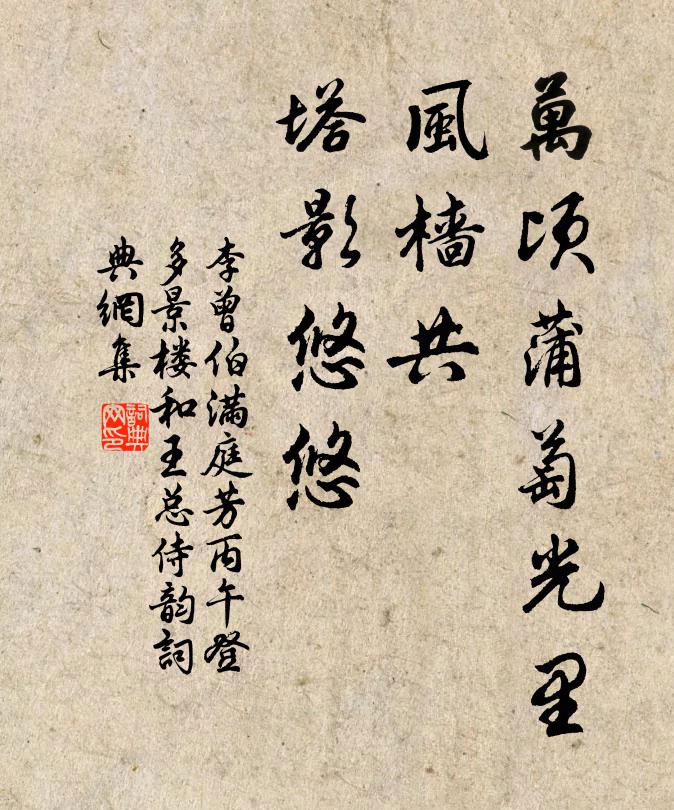 萬頃蒲萄光里
風檣共
塔影悠悠
李曾伯满庭芳丙午登
多景楼和王总侍韵詞
典網集
詞典
网印